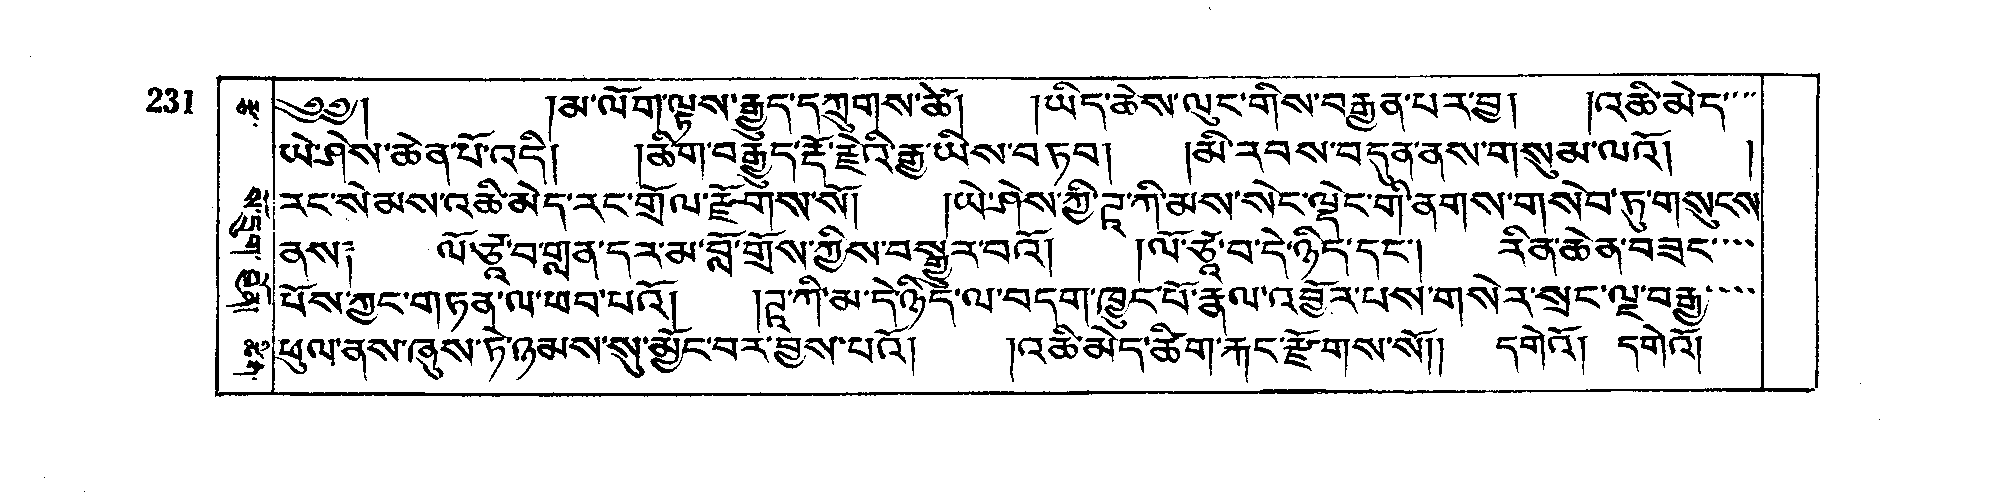 231
༄༅། །མ་ལོག་ལྟས་རྒྱུད་དཀྲུགས་ཚེ། །ཡིད་ཆེས་ལུང་གིས་བརྒྱན་པར་བྱ། །འཆི་མེད་
ཡེ་ཤེས་ཆེན་པོ་འདི། །ཚིག་བརྒྱུད་རྡོ་རྗེའི་རྒྱ་ཡིས་བཏབ། །མི་རབས་བདུན་ནས་གསུམ་ལའོ། །
རང་སེམས་འཆི་མེད་རང་གྲོལ་རྫོགས་སོ། །ཡེ་ཤེས་ཀྱི་ཌཱ་ཀི་མས་སེང་ལྡེང་གི་ནགས་གསེབ་ཏུ་གསུངས
ནས༑ ལོ་ཙཱ་བ་གླན་དར་མ་བློ་གྲོས་ཀྱིས་བསྒྱུར་བའོ། །ལོ་ཙཱ་བ་དེ་ཉིད་དང་། རིན་ཆེན་བཟང་
པོས་ཀྱང་གཏན་ལ་ཕབ་པའོ། །ཌཱ་ཀི་མ་དེ་ཉིད་ལ་བདག་ཁྱུང་པོ་རྣལ་འབྱོར་པས་གསེར་སྲང་ལྔ་བརྒྱ་
ཕུལ་ནས་ཞུས་ཏེ་ཉམས་སུ་མྱོང་བར་བྱས་པའོ། །འཆི་མེད་ཚིག་རྐང་རྫོགས་སོ།། དགེའོ། དགེའོ།